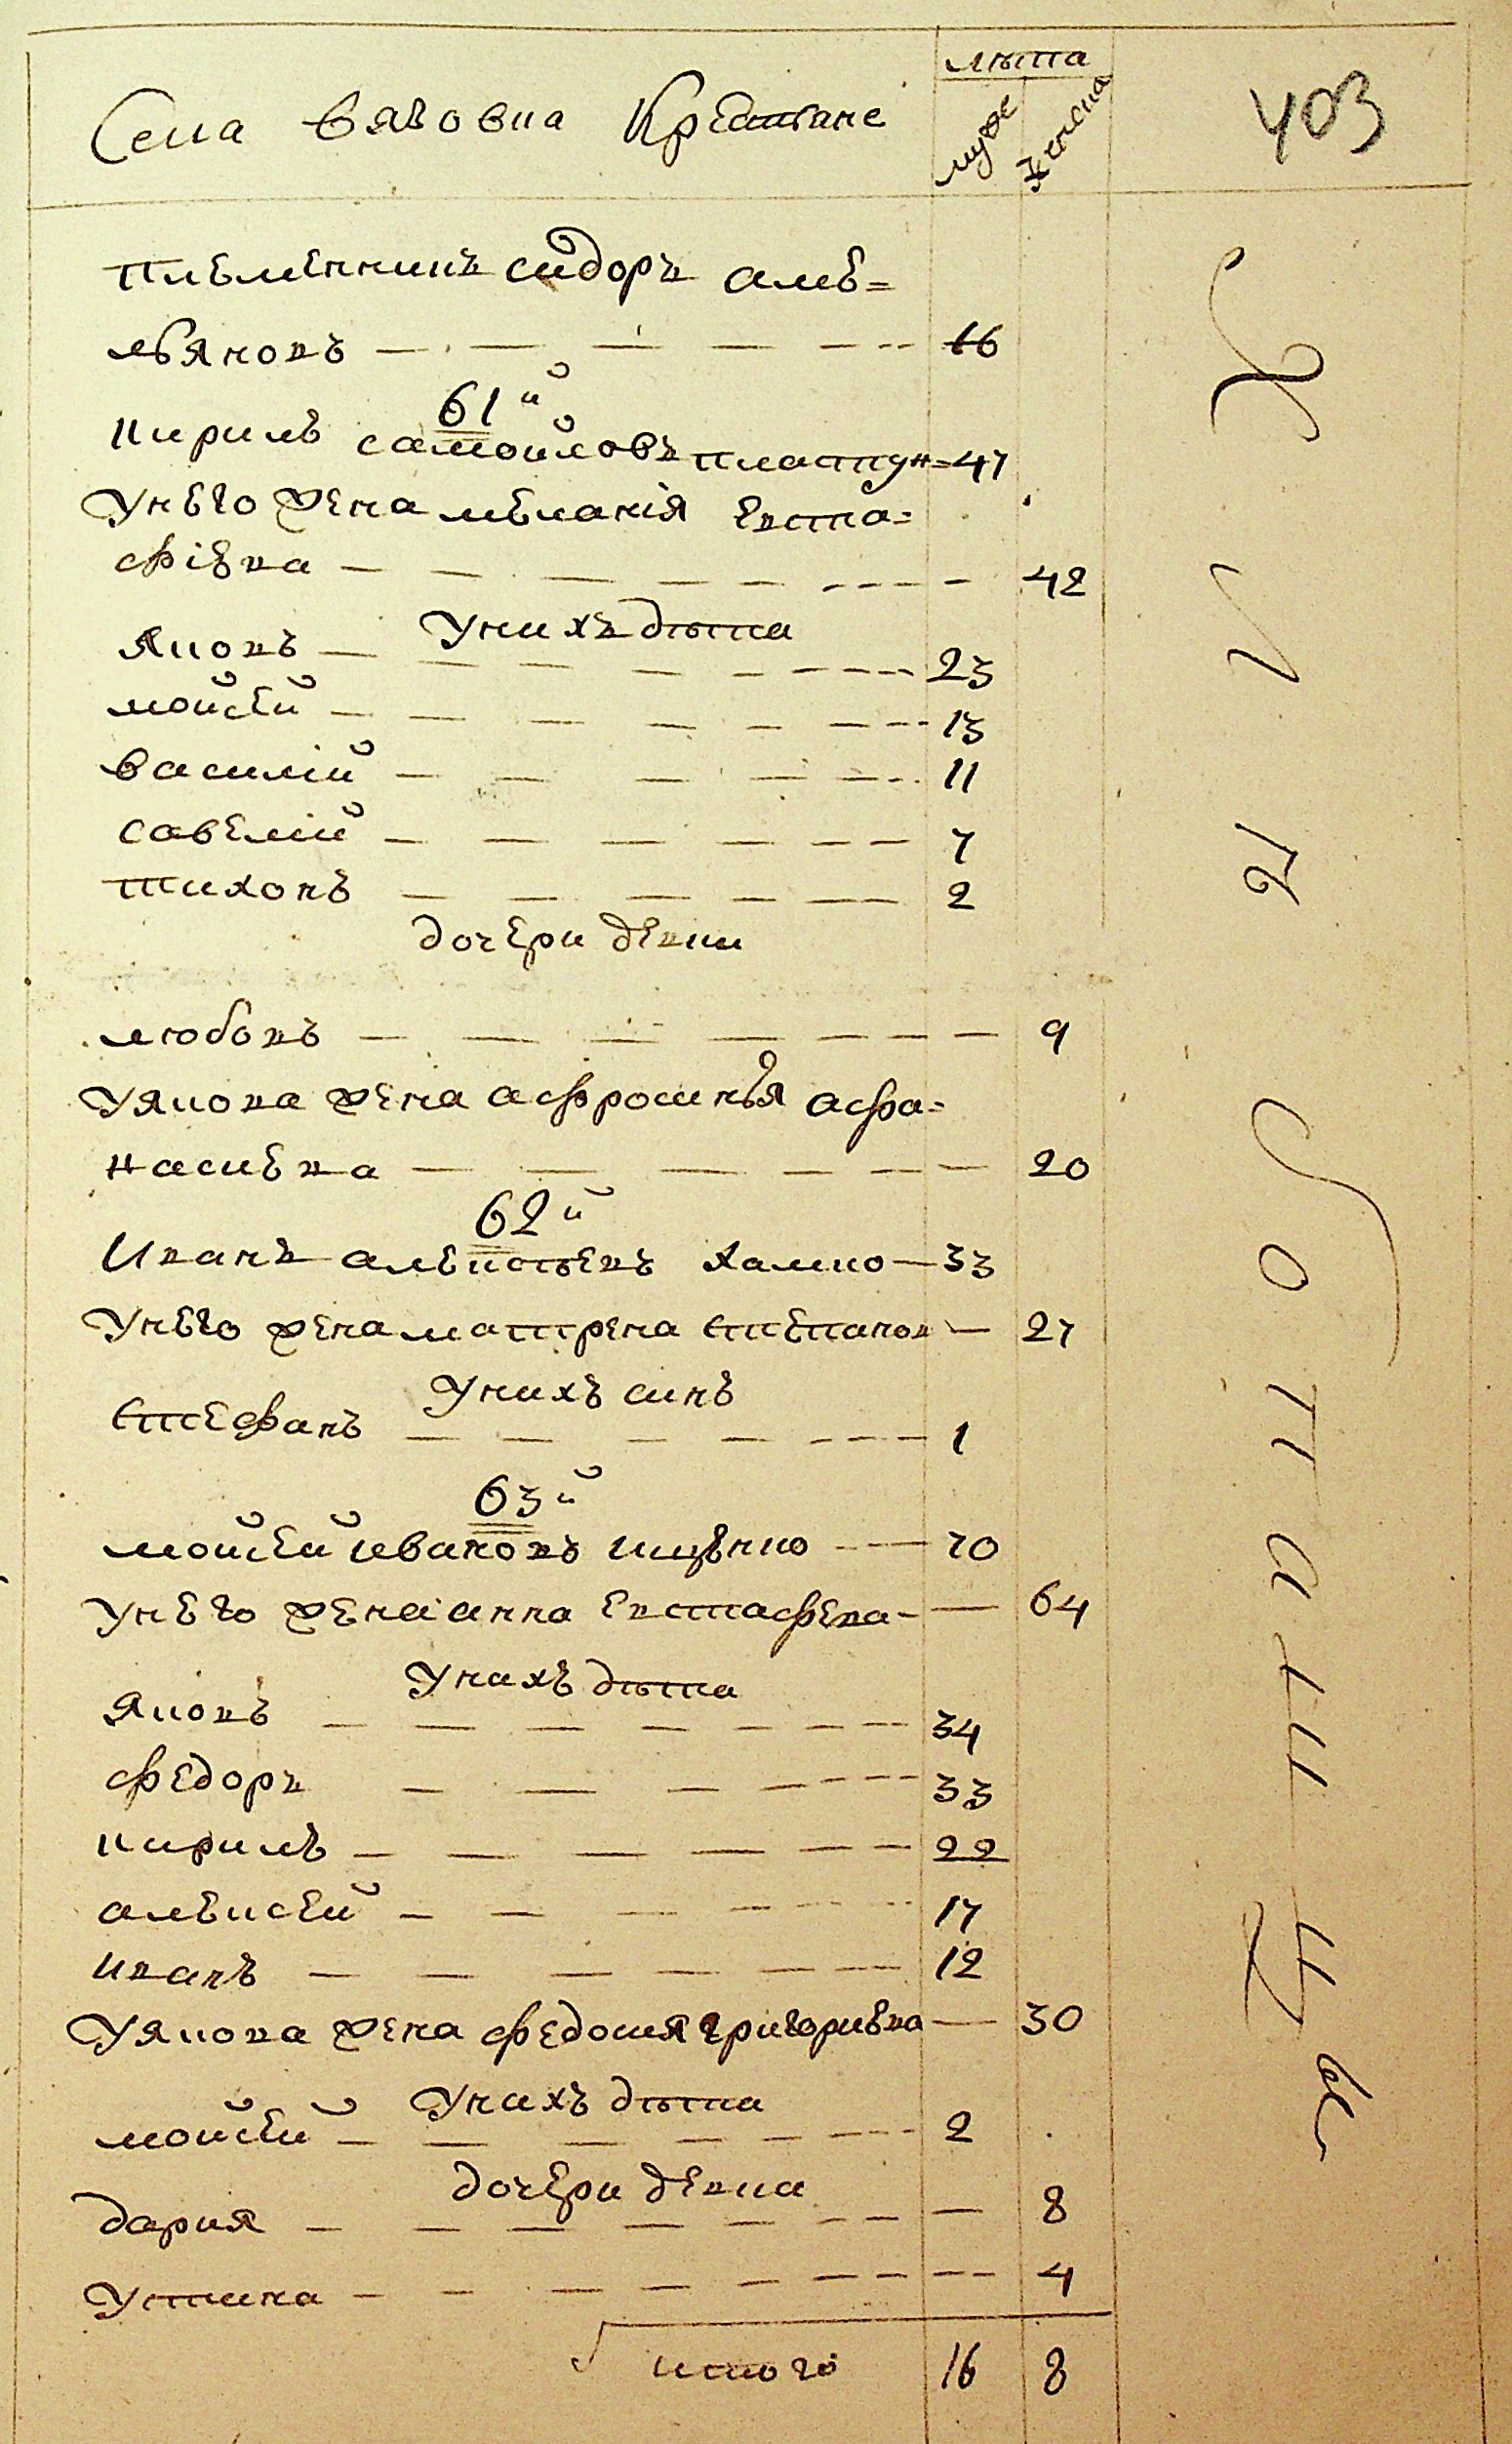 лѣта
Села вязовка Крестяне муже жена 403
племенникъ сидоръ амѣ=
льяновъ — — — — — 16
61й
кирилъ самойловъ пластун=47
Унего жена меланія Евста=
фіевна — — — — — 42
Унихъ дѣти
Яковъ — — — — — 23
мойсей — — — — — 13
василій — — — — — 11
савелий — — — — — 7
тихонъ — — — — — 2
дочери девки
любовъ — — — — — 9
Уякова жена афросинья афа=
насиевна — — — — — 20
62й
Иванъ алексѣевъ халико — 33
Унего жена матрена степанов — 27
Унихъ синъ
стефанъ — — — — — 1
63й
мойсей ивановъ ищенко — — 70
Унего жена анна Евстафева — — 64
Унихъ дѣти
Яковъ — — — — — 34
федоръ — — — — — 33
кирилъ — — — — — 22
алексей — — — — — 17
иванъ — — — — — 12
Уякова жена федосия григориевна — 30
Унихъ дѣти
мойсей — — — — — 2
дочери девки
дария — — — — — 8
Устина — — — — — 4
итого 16 8